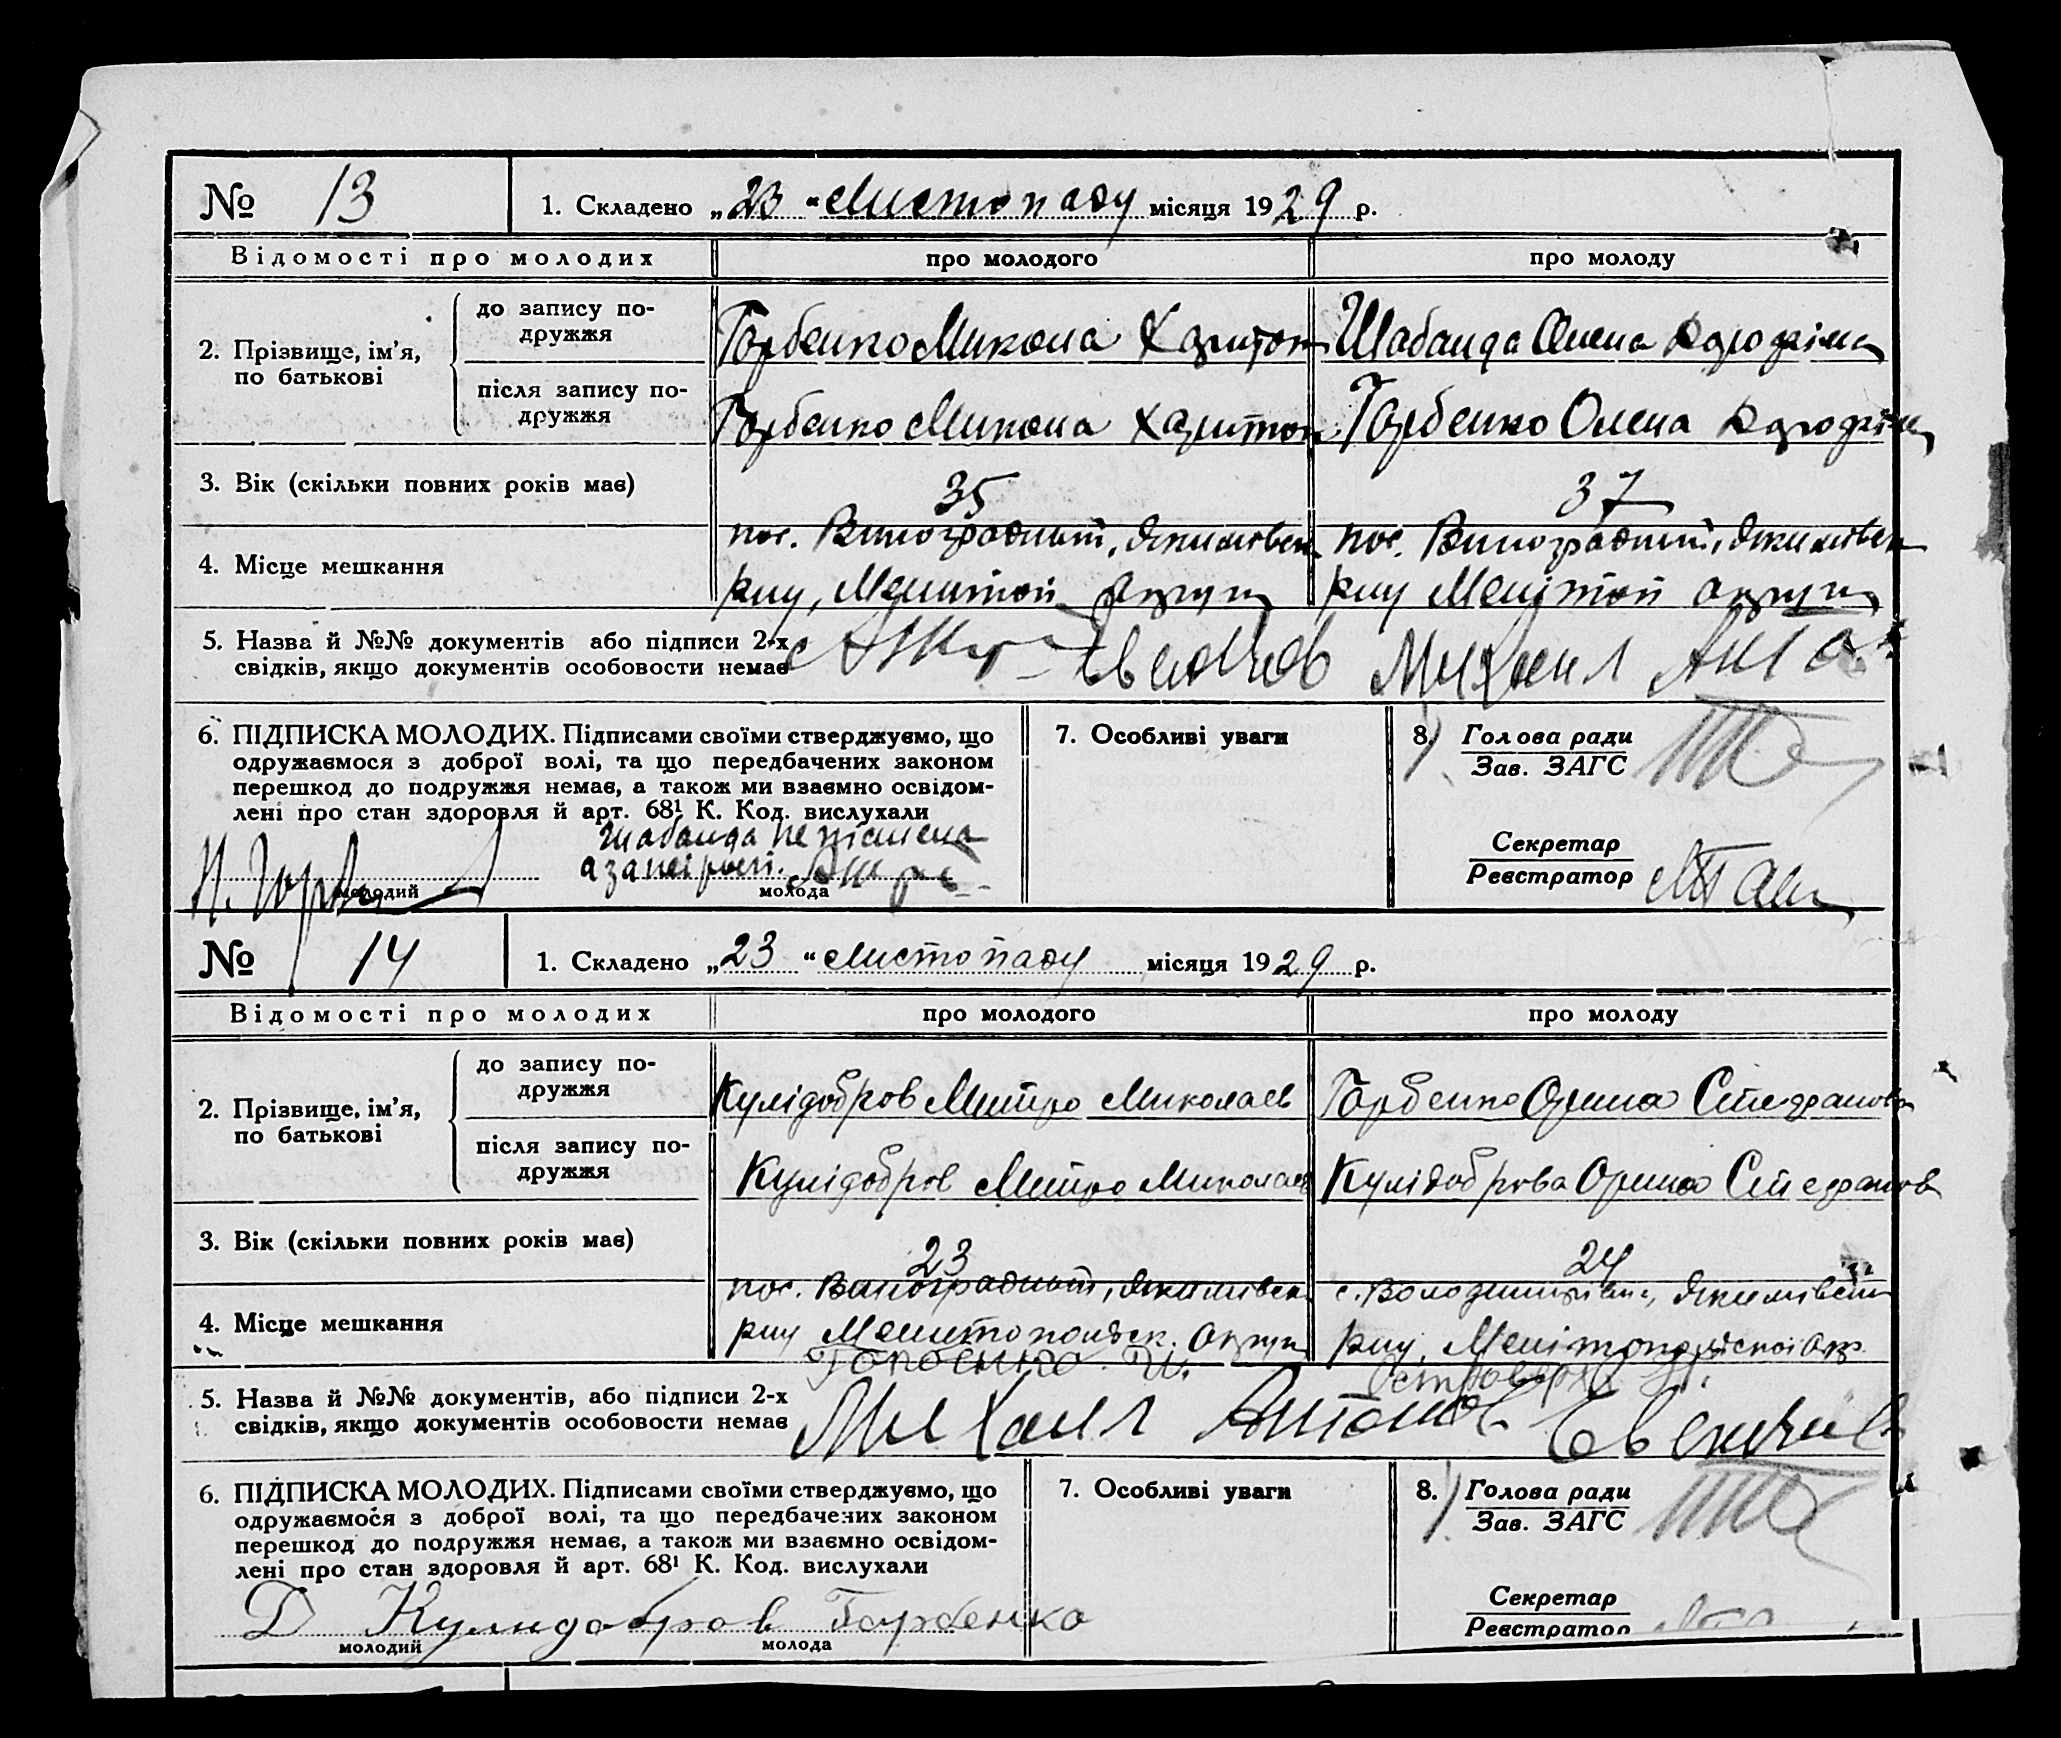 № 13 1. Складено „23“ Листопаду місяця 1929 р.
Відомості про молодих про молодого про молоду
2. Прізвище, ім’я, по батькові
до запису подружжя Горбенко Микола Харитон Шабанда Олена
після запису подружжя Горбенко Микола Харитон Горбенко Олена
3. Вік (скільки повних років має) 35 37
4. Місце мешкання
пос. Виноградний, Якимівськ пос. Виноградний, Якимівськ
р-ну, округи р-ну округи
5. Назва й №№ документів або підписи 2-х
свідків, якщо документів особовости немає
Михаил
6. ПІДПИСКА МОЛОДИХ. Підписами своїми стверджуємо, що
одружаємося з доброї волі, та що передбачених законом
перешкод до подружжя немає, а також ми взаємно освідом-
лені про стан здоровля й арт. 68¹ К. Код. вислухали
Шабанда
молодий молода
7. Особливі уваги
8. Голова ради
Зав. ЗАГС
Секретар
Реєстратор
№ 14 1. Складено „23“ Листопаду місяця 1929 р.
Відомості про молодих про молодого про молоду
2. Прізвище, ім’я, по батькові
до запису подружжя Кулідобров Митро Миколаєв Горбенко Орина Степанова
після запису подружжя Кулідобров Митро Миколаєв Кулідоброва Орина
3. Вік (скільки повних років має) 23 24
4. Місце мешкання
пос. Виноградний, Якимівськ с. Володимирівка, Якимівськ
р-ну Мелитопольськ. округи р-ну, Мелітопольської окр.
Горбенко
5. Назва й №№ документів, або підписи 2-х
свідків, якщо документів особовости немає
Михаил Антонов
6. ПІДПИСКА МОЛОДИХ. Підписами своїми стверджуємо, що
одружаємося з доброї волі, та що передбачених законом
перешкод до подружжя немає, а також ми взаємно освідом-
лені про стан здоровля й арт. 68¹ К. Код. вислухали
Д Кулидобров Горбенко
молодий молода
7. Особливі уваги
8. Голова ради
Зав. ЗАГС
Секретар
Реєстратор